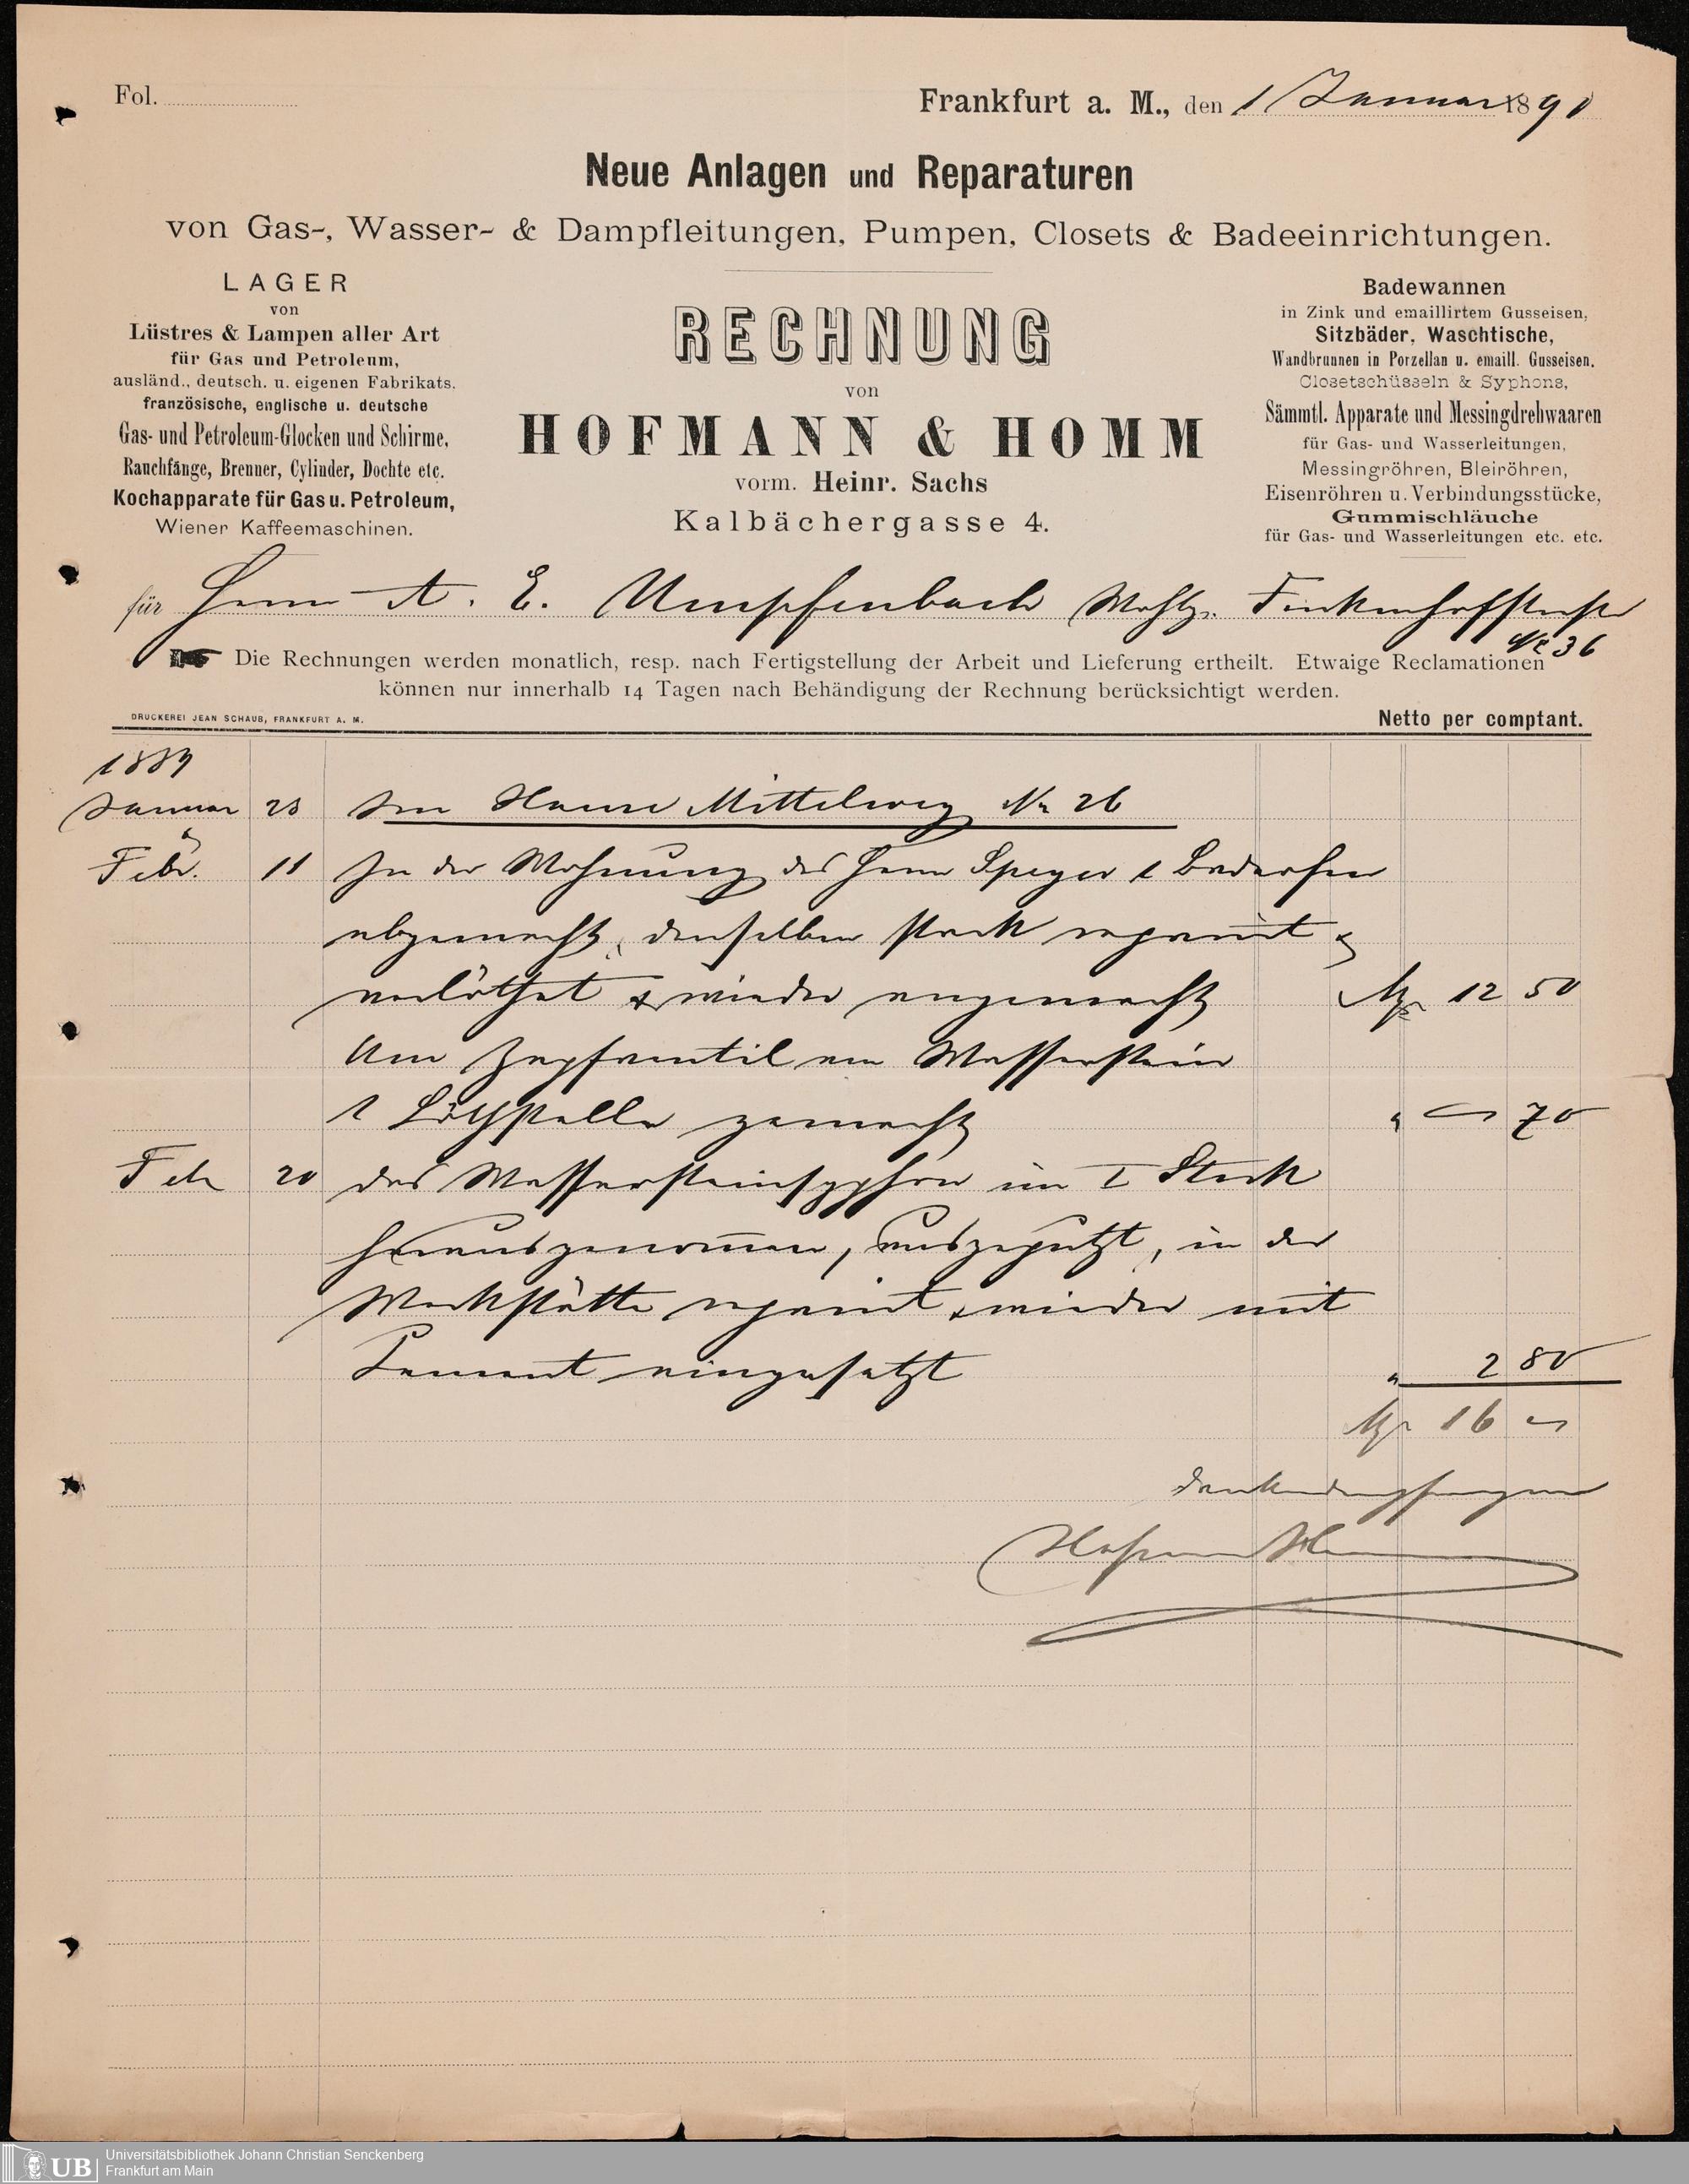 Fol.
Frankfurt a. M., den 1 Januar 1890
Neue Anlagen und Reparaturen
von Gas-, Wasser- & Dampfleitungen, Pumpen, Closets & Badeeinrichtungen.
LAGER
von
Lüstres & Lampen aller Art
für Gas und Petroleum,
ausländ., deutsch. u. eigenen Fabrikats.
französische, englische u. deutsche
Gas- und Petroleum-Glocken und Schirme,
Rauchfänge, Brenner, Cylinder, Dochte etc.
Kochapparate für Gas u. Petroleum,
Wiener Kaffeemaschinen.
RECHNUNG
von
HOFMANN & HOMM
vorm. Heinr. Sachs
Kalbächergasse 4.
Badewannen
in Zink und emaillirtem Gusseisen,
Sitzbäder, Waschtische,
Wandbrunnen in Porzellan u. emaill. Gusseisen.
Closetschüsseln & Syphons,
Sämmtl. Apparate und Messingdrehwaaren
für Gas- und Wasserleitungen,
Messingröhren, Bleiröhren,
Eisenröhren u. Verbindungsstücke,
Gummischläuche
für Gas- und Wasserleitungen etc. etc.
für Herrn A. E. Umpfenbach Wohlg. Finkenhofstraße
No 36
Die Rechnungen werden monatlich, resp. nach Fertigstellung der Arbeit und Lieferung ertheilt. Etwaige Reclamationen
können nur innerhalb 14 Tagen nach Behändigung der Rechnung berücksichtigt werden.
DRUCKEREI JEAN SCHAUB, FRANKFURT A. M.
Netto per comptant.
1889
Januar 23 Im Hause Mittelweg No 26
Febr. 11 In der Wohnung des Herrn Speyer 1 Badeofen
abgemacht, denselben stark reparirt &
verlöthet & wieder angemacht M 12 50
Am Zapfventil am Wasserstein
1 Löthstelle gemacht " – 70
Feb 20 das Wassersteinsyphon im I Stock
herausgenommen, ausgeputzt, in der
Werkstätte reparirt & wieder mit
Cement eingesetzt " 2 80
M 16 –
dankend empfangen
Hofmann & Homm
Universitätsbibliothek Johann Christian Senckenberg
Frankfurt am Main
UB